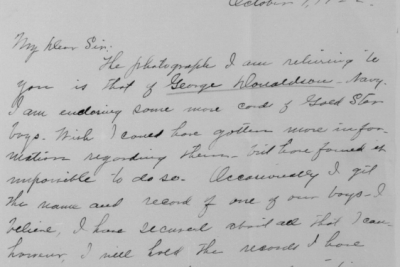 October
My dear Sir:
The photograph I am returning to
you is that of George Donaldson - Navy.
I am enclosing some more cards of Gold Star
boys. Wish I could have gotten more infor-
mation regarding them - but have found it
impossible to do so. Occasionally I get
the name and record of one of our boys - I
believe, I have secured about all that I can
however, I will hold the records I have